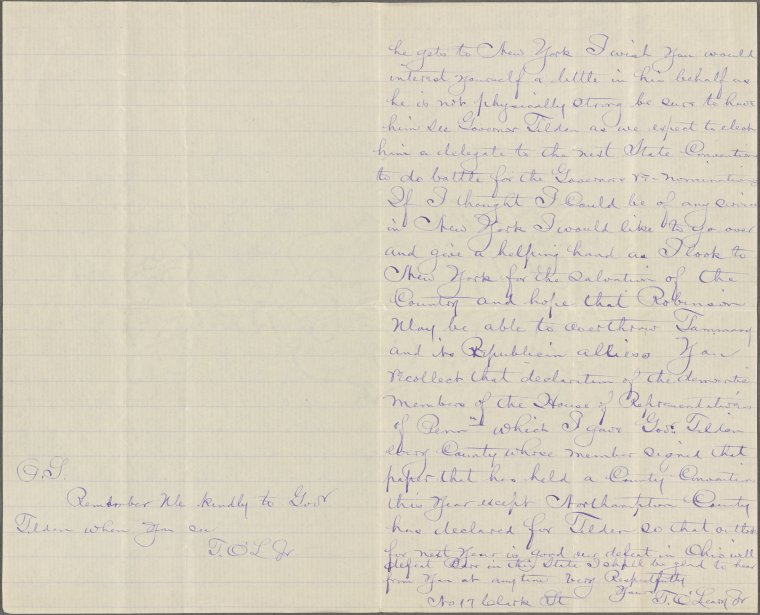 he gets to New York I wish you would
interest yourself a little in his behalf as
he is not physically strong be sure to have
him see Governor Tilden as we expect to elect
him a delegate to the next State Convention
to do battle for the Governor re-nomination
If I thought I could be of any service
in New York I would like to go over
and give a helping hand as I look to
New York for the salvation of the
Country and hope that Robinson
May be able to overthrow Tammany
and its Republican allies You
recollect that declaration of the democratic
members of the House of Representatives
of Penna which I gave Gov. Tilden
every County whose member signed that
paper that has held a County Convention
this Year except Northampton County
has declared for Tilden so that
for next Year is good our defeat in Ohio will
defeat in this State I shall be glad to hear
from You at anytime Very Respectfully
Yours T. O'Leary Jr
No 17 Clark St
P.S.
Remember Me kindly to Govr
Tilden when You see
T. O'L Jr